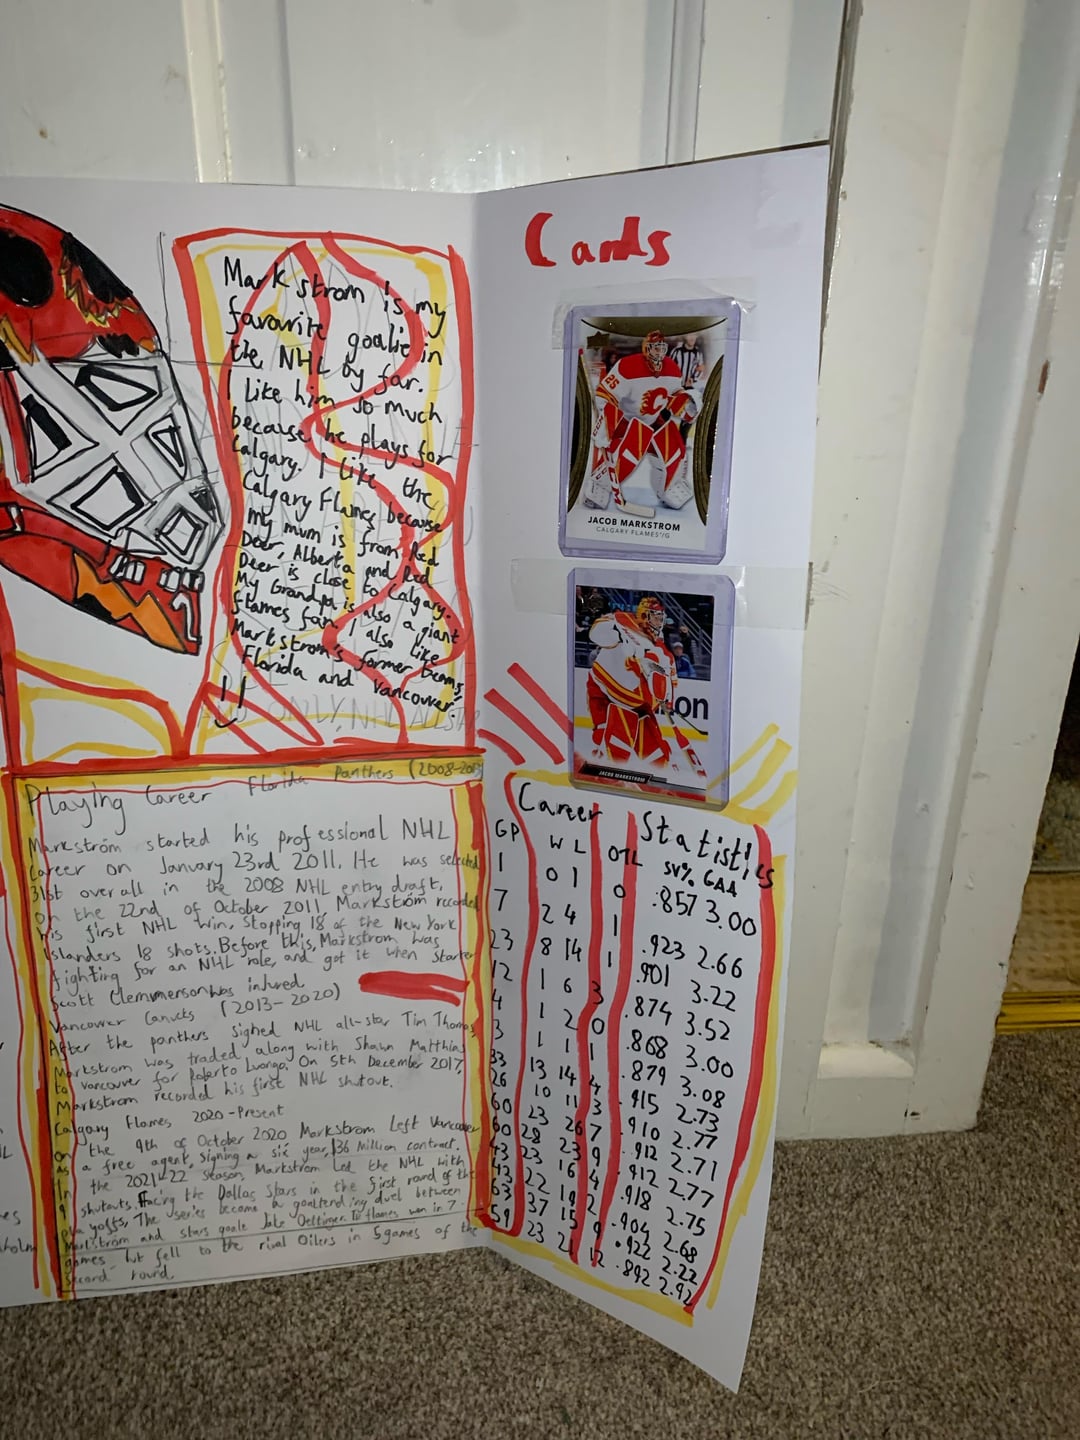 Markstrom is my
favourite goalie in
the NHL by far.
I like him so much
because he plays for
Calgary. I like the
Calgary Flames because
my mum is from Red
Deer, Alberta and Red
Deer is close to Calgary.
My Grandpa is also a giant
flames fan. I also like
Markstrom's former teams,
Florida and Vancouver.
AND ONLY, NHL ALLSTAR
Playing Career Florida Panthers (2008-2013
Markstrom started his professional NHL
career on January 23rd 2011. He was selected
31st overall in the 2008 NHL entry draft.
On the 22nd of October 2011, Markstrom recorded
his first NHL win, stopping 18 of the New York
Islanders 18 shots. Before this, Markstrom was
fighting for an NHL role, and got it when starter
Scott Clemmerson was injured
Vancouver Canucks (2013-2020)
After the panthers signed NHL all-star Tim Thomas,
Markstrom was traded along with Shawn Matthias
to vancouver for Roberto Luongo. On 5th December 2017,
Markstrom recorded his first NHL shutout.
Calgary Flames 2020-Present
On the 9th of October 2020 Markstrom Left Vancouver
as a free agent, signing a six year, $36 Million contract.
In the 2021-22 season, Markstrom Led the NHL with
9 shutouts. Facing the Dallas Stars in the first round of the
playoffs, The series became a goaltending duel between
Markstrom and stars goalie Jake Oettinger. The flames won in 7
games, but fell to the rival Oilers in 5 games of the
second round.
Cards
25
JACOB MARKSTROM
CALGARY FLAMES/G
on
JACOB MARKSTROM
Career Statistics
GP W L OTL SV% GAA
1 0 1 0 .857 3.00
7 2 4 1 .923 2.66
23 8 14 1 .901 3.22
12 1 6 3 .874 3.52
4 1 2 0 .868 3.00
3 1 1 1 .879 3.08
33 13 14 4 .915 2.73
26 10 11 3 .910 2.77
60 23 26 7 .912 2.71
60 28 23 9 .912 2.77
43 23 16 4 .918 2.75
43 22 19 2 .904 2.68
63 37 15 9 .922 2.22
59 23 21 12 .892 2.92